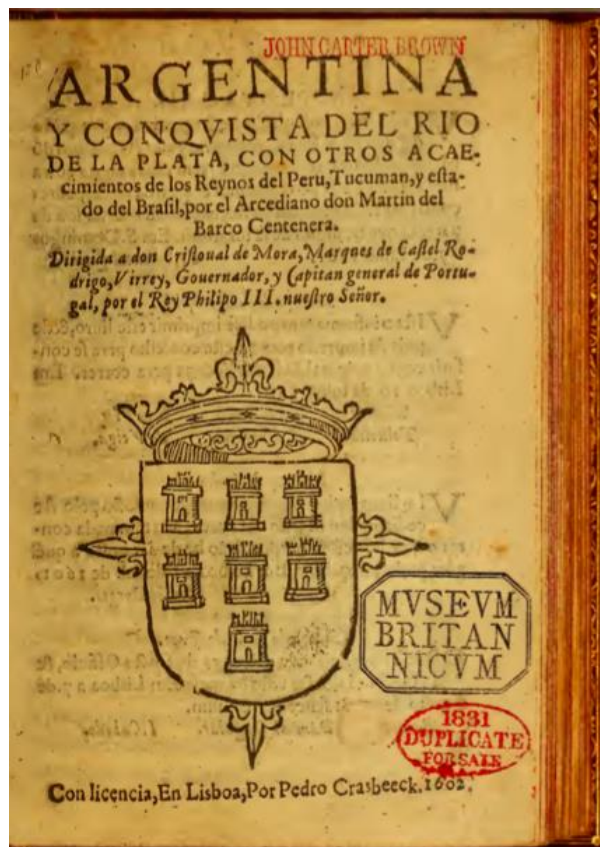 JOHN CARTER BROWN
ARGENTINA
Y CONQVISTA DEL RIO
DE LA PLATA, CON OTROS ACAE-
cimientos de los Reynos del Peru, Tucuman, y eſta-
do del Braſil, por el Arcediano don Martin del
Barco Centenera.
Dirigida a don Criſtoual de Mora, Marques de Caſtel Ro-
drigo, Virrey, Gouernador, y Capitan general de Portu-
gal, por el Rey Philipo III. nueſtro Señor.
MVSEVM
BRITAN
NICVM
1831
DUPLICATE
FOR SALE
Con licencia, En Lisboa, Por Pedro Crasbeeck. 1602.